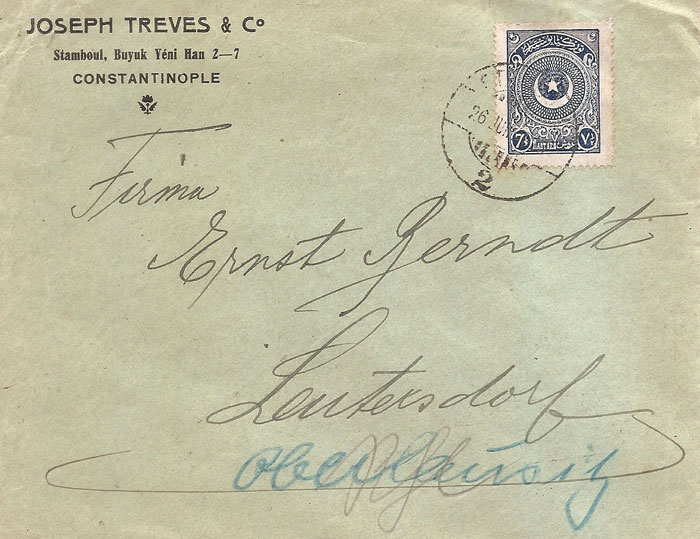 JOSEPH TREVES & Co
Stamboul, Buyuk Yéni Han 2—7
CONSTANTINOPLE
26 JUIN
2
7½
٧½
Firma
Ernst Berndt
Leutersdorf
Oberlausitz